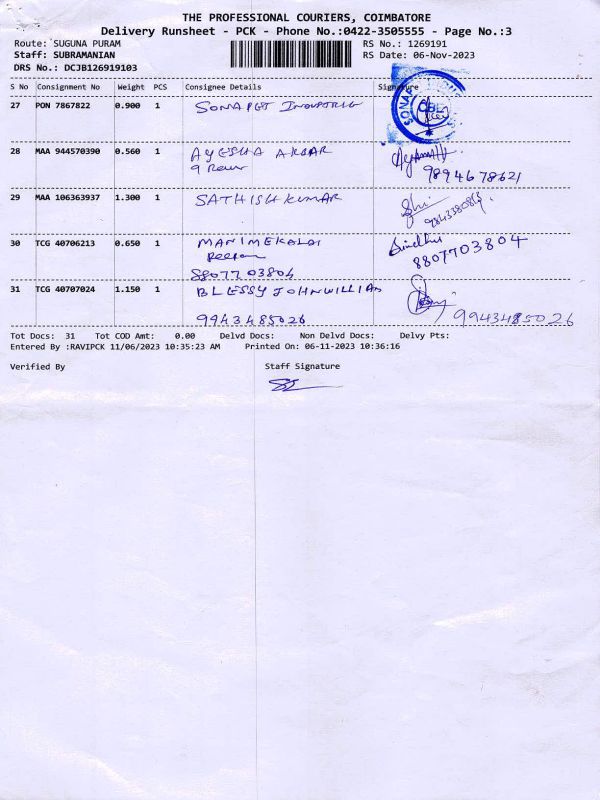 THE PROFESSIONAL COURIERS, COIMBATORE
Delivery Runsheet - PCK - Phone No.:0422-3505555 - Page No.:3
Route: SUGUNA PURAM RS No.: 1269191
Staff: SUBRAMANIAN RS Date: 06-Nov-2023
DRS No.: DCJB126919103
S No Consignment No Weight PCS Consignee Details Signature
27 PON 7867822 0.900 1 SONAPET INDUSTRIE
28 MAA 944570390 0.560 1 AYESHA AKBAR
9894678621
29 MAA 106363937 1.300 1 SATHISHKUMAR
9843380813
30 TCG 40706213 0.650 1 MANIMEKALAI Sindhu
8807703804 8807703804
31 TCG 40707024 1.150 1 BLESSY JOHNWILLIAM
9943485026 9943485026
Tot Docs: 31 Tot COD Amt: 0.00 Delvd Docs: Non Delvd Docs: Delvy Pts:
Entered By :RAVIPCK 11/06/2023 10:35:23 AM Printed On: 06-11-2023 10:36:16
Verified By Staff Signature